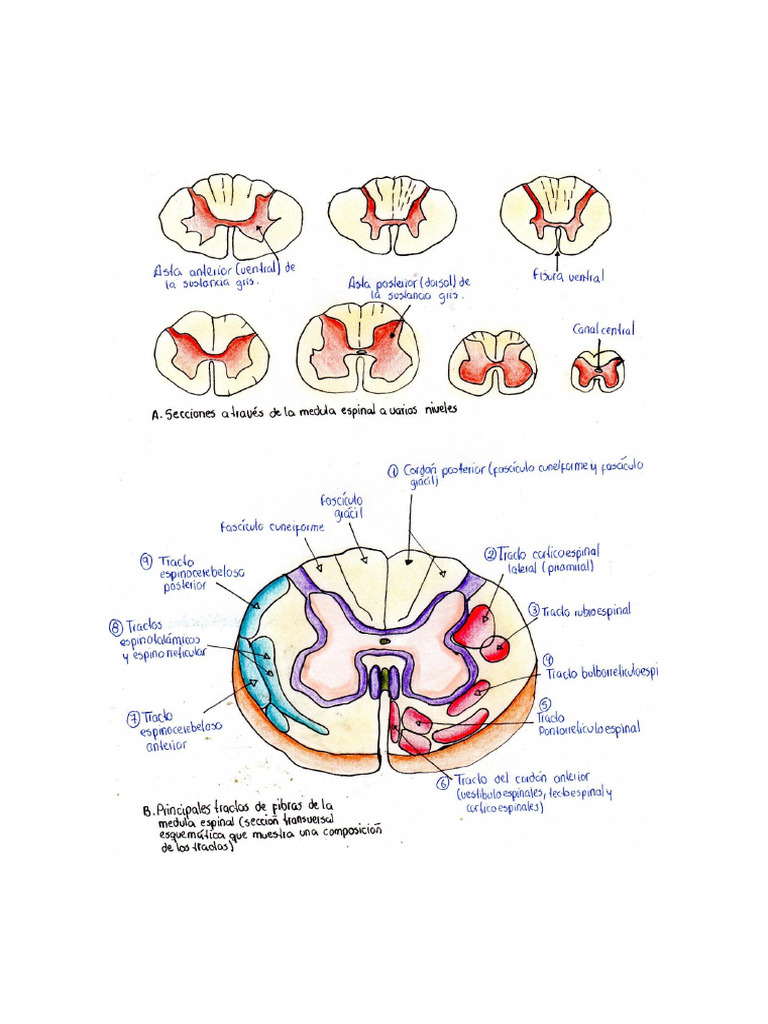 Asta anterior (ventral) de
la sustancia gris.
Asta posterior (dorsal) de
la sustancia gris.
Fisura ventral
Canal central
A. Secciones a través de la medula espinal a varios niveles
① Cordón posterior (fascículo cuneiforme y fascículo
grácil)
fascículo
grácil
fascículo cuneiforme
② Tracto corticoespinal
lateral (piramiial)
③ Tracto rubioespinal
④
Tracto bulborreticuloespi
⑤
Tracto
Pontorreticuloespinal
⑥ Tracto del cordón anterior
(vestibuloespinales, tectoespinal y
corticoespinales)
⑨ Tracto
espinocerebeloso
posterior
⑧ Tractos
espinotalámicos
y espino rreticular
⑦ Tracto
espinocerebeloso
anterior
B. Principales tractos de fibras de la
medula espinal (sección transversal
esquemática que muestra una composición
de los tractos)